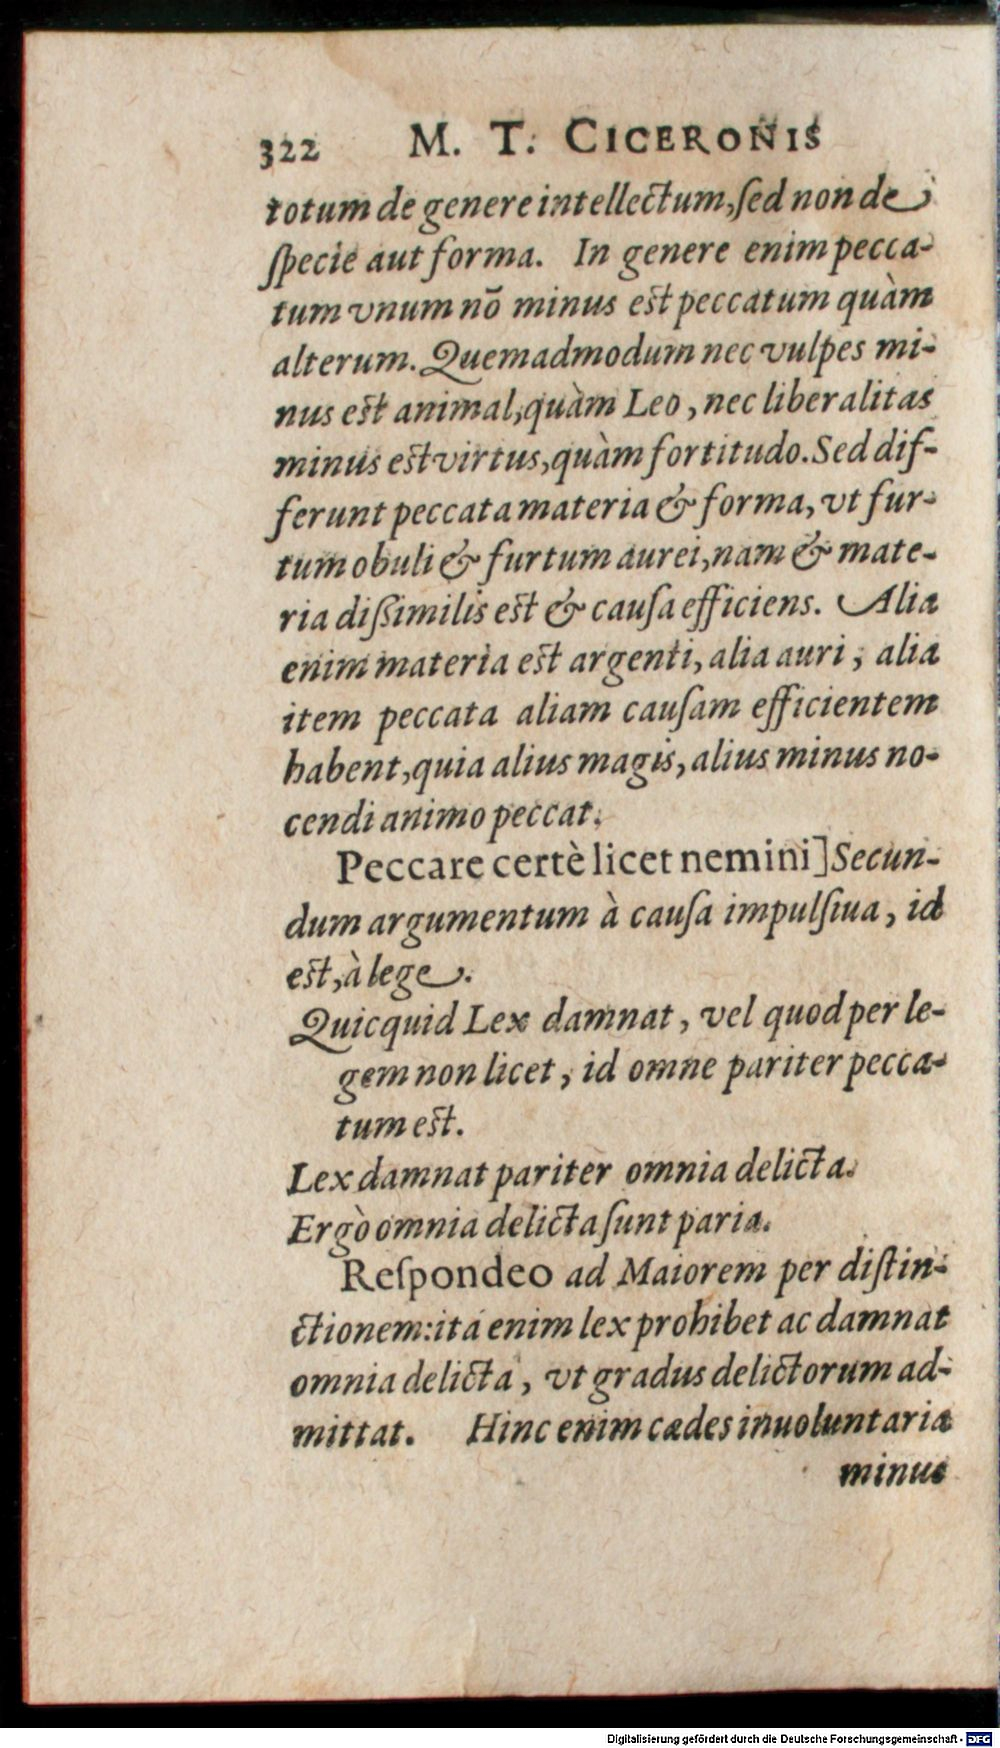 322 M. T. CICERONIS
totum de genere intellectum, ſed non de
ſpecie aut forma. In genere enim pecca-
tum vnum nō minus est peccatum quàm
alterum. Quemadmodum nec vulpes mi-
nus est animal, quàm Leo, nec liberalitas
minus est virtus, quàm fortitudo. Sed dif-
ferunt peccata materia & forma, vt fur-
tum obuli & furtum aurei, nam & mate-
ria diſsimilis est & cauſa efficiens. Alia
enim materia est argenti, alia auri; alia
item peccata aliam cauſam efficientem
habent, quia alius magis, alius minus no-
cendi animo peccat.
Peccare certè licet nemini] Secun-
dum argumentum à cauſa impulſiua, id
est, à lege.
Quicquid Lex damnat, vel quod per le-
gem non licet, id omne pariter pecca-
tum est.
Lex damnat pariter omnia delicta.
Ergò omnia delicta ſunt paria.
Reſpondeo ad Maiorem per diſtin-
ctionem: ita enim lex prohibet ac damnat
omnia delicta, vt gradus delictorum ad-
mittat. Hinc enim cædes inuoluntaria
minus
Digitalisierung gefördert durch die Deutsche Forschungsgemeinschaft - DFG